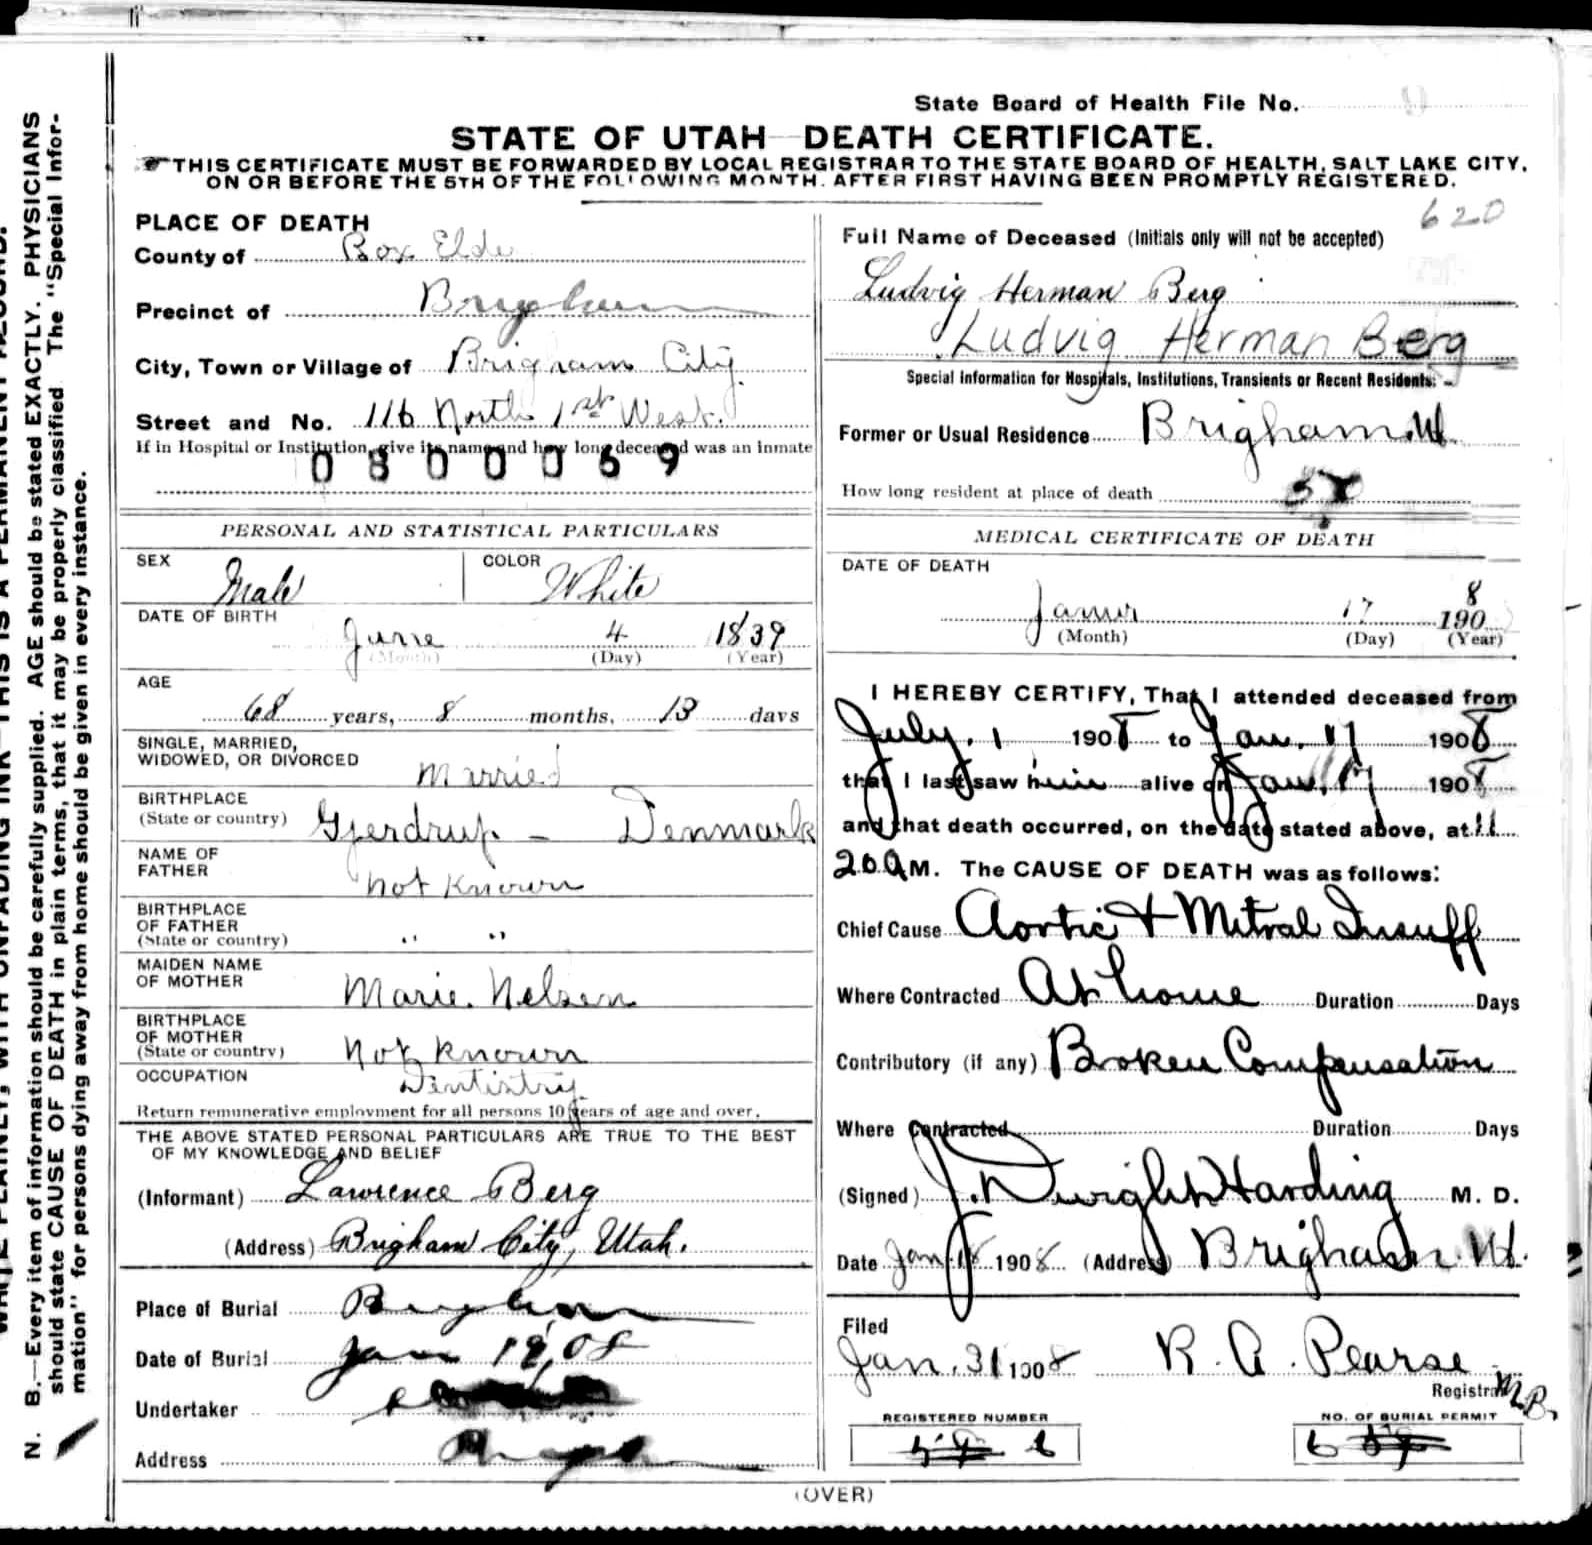 State Board of Health File No.
STATE OF UTAH—DEATH CERTIFICATE.
THIS CERTIFICATE MUST BE FORWARDED BY LOCAL REGISTRAR TO THE STATE BOARD OF HEALTH, SALT LAKE CITY,
ON OR BEFORE THE 5TH OF THE FOLLOWING MONTH, AFTER FIRST HAVING BEEN PROMPTLY REGISTERED.
N. B.—Every item of information should be carefully supplied. AGE should be stated EXACTLY. PHYSICIANS
should state CAUSE OF DEATH in plain terms, that it may be properly classified. The "Special Infor-
mation" for persons dying away from home should be given in every instance.
PLACE OF DEATH
County of Box Elder
Precinct of Brigham
City, Town or Village of Brigham City
Street and No. 116 North 1st West.
If in Hospital or Institution, give its name and how long deceased was an inmate
0800069
PERSONAL AND STATISTICAL PARTICULARS
SEX Male
COLOR White
DATE OF BIRTH
June 4 1839
(Month) (Day) (Year)
AGE
68 years, 8 months, 13 days
SINGLE, MARRIED,
WIDOWED, OR DIVORCED Married
BIRTHPLACE
(State or country) Gjerdrup - Denmark
NAME OF
FATHER not known
BIRTHPLACE
OF FATHER
(State or country) " "
MAIDEN NAME
OF MOTHER Marie. Nelsen
BIRTHPLACE
OF MOTHER
(State or country) Not known
OCCUPATION Dentistry
Return remunerative employment for all persons 10 years of age and over.
THE ABOVE STATED PERSONAL PARTICULARS ARE TRUE TO THE BEST
OF MY KNOWLEDGE AND BELIEF
(Informant) Lawrence Berg
(Address) Brigham City, Utah.
Place of Burial Brigham
Date of Burial Jan 19, 08
Undertaker
Address
620
Full Name of Deceased (Initials only will not be accepted)
Ludvig Herman Berg
Ludvig Herman Berg
Special Information for Hospitals, Institutions, Transients or Recent Residents:
Former or Usual Residence Brigham, Ut.
How long resident at place of death
MEDICAL CERTIFICATE OF DEATH
DATE OF DEATH
17 1908
(Month) (Day) (Year)
I HEREBY CERTIFY, That I attended deceased from
July. 1 1908 to Jan. 17 1908
that I last saw him alive on Jan. 17 1908
and that death occurred, on the date stated above, at 11
20 A M. The CAUSE OF DEATH was as follows:
Chief Cause Aortic & Mitral Insuff
Where Contracted At home Duration Days
Contributory (if any) Broken Compensation
Where Contracted Duration Days
(Signed) J. Dwight Harding M. D.
Date Jan. 18 1908 (Address) Brigham. Ut.
Filed
Jan. 31 1908 R. A. Pearse
Registrar M.D.
REGISTERED NUMBER
6
NO. OF BURIAL PERMIT
6
(OVER)